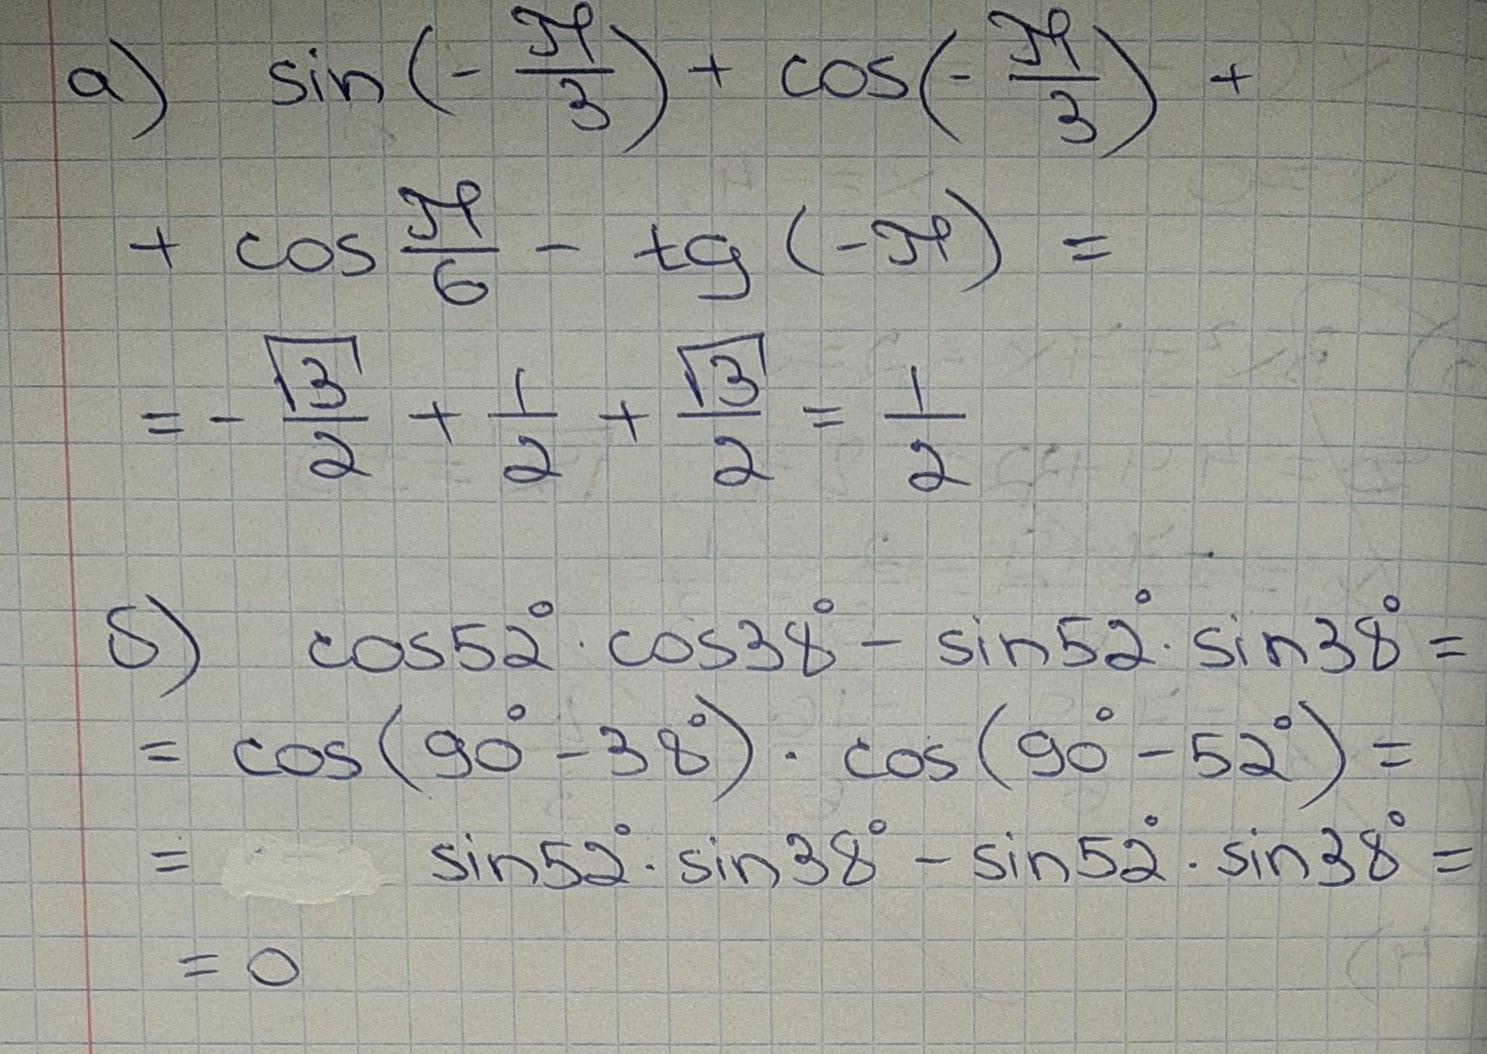 а) sin(-π/3) + cos(-π/3) +
+ cos π/6 - tg (-π) =
= - √3/2 + 1/2 + √3/2 = 1/2
б) cos52° · cos38° - sin52° · sin38° =
= cos(90° - 38°) · cos(90° - 52°) =
= sin52° · sin38° - sin52° · sin38° =
= 0